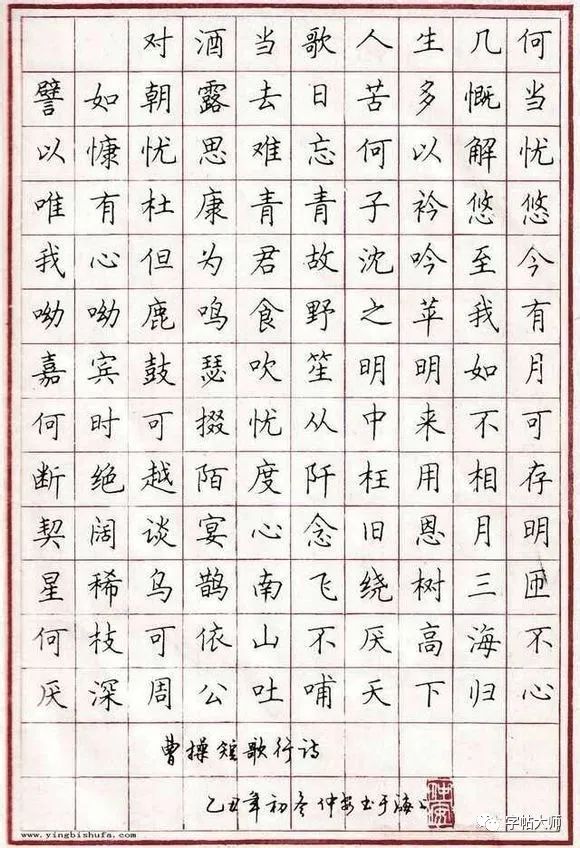 对酒当歌人生几何
譬如朝露去日苦多慨当
以慷忧思难忘何以解忧
唯有杜康青青子衿悠悠
我心但为君故沈吟至今
呦呦鹿鸣食野之苹我有
嘉宾鼓瑟吹笙明明如月
何时可掇忧从中来不可
断绝越陌度阡枉用相存
契阔谈宴心念旧恩月明
星稀乌鹊南飞绕树三匝
何枝可依山不厌高海不
厌深周公吐哺天下归心
曹操短歌行诗
乙丑年初冬仲安书于海上
www.yingbishufa.com
字帖大师